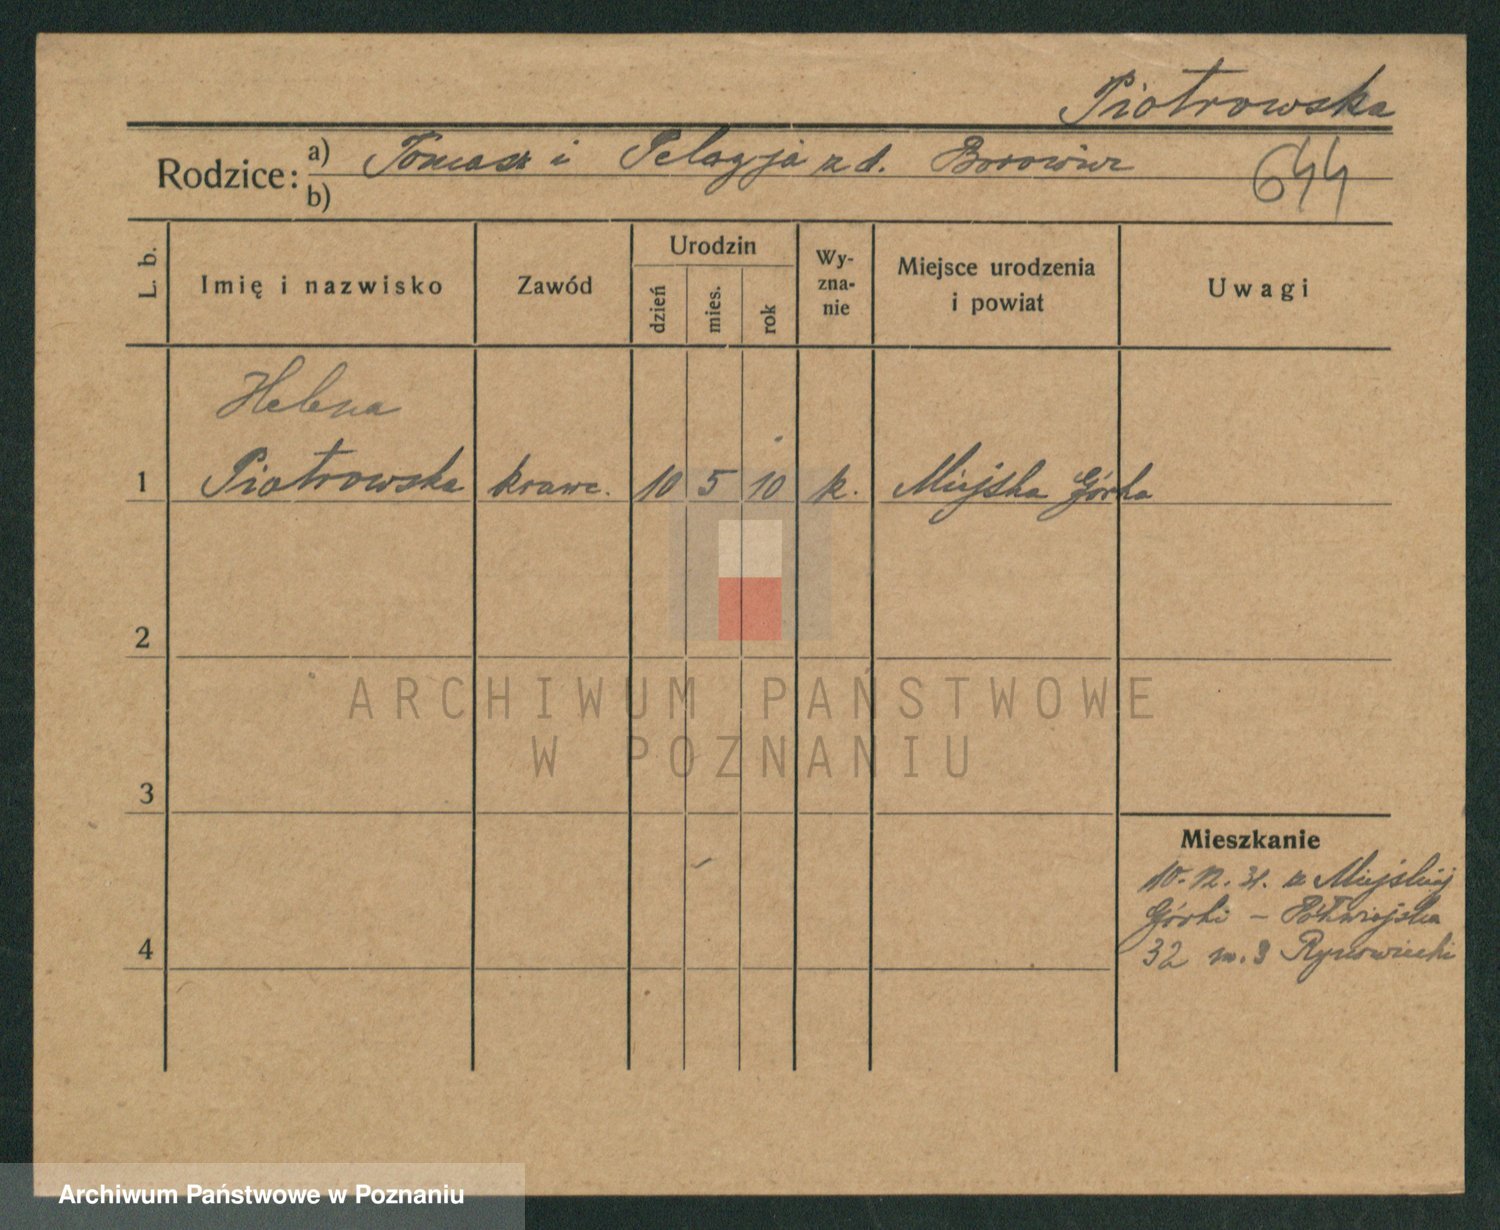 Piotrowska
Rodzice: a) Tomasz i Pelagja z d. Borowicz
b)
644
L. b.
Imię i nazwisko
Zawód
Urodzin
dzień
mies.
rok
Wy-
zna-
nie
Miejsce urodzenia
i powiat
Uwagi
Helena
1 Piotrowska krawc. 10 5 10 k. Miejska Górka
2
3
4
Mieszkanie
10. 12. 31. z Miejskiej
Górki – Półwiejska
32 m. 3 Rynowiecki
ARCHIWUM PAŃSTWOWE
W POZNANIU
Archiwum Państwowe w Poznaniu